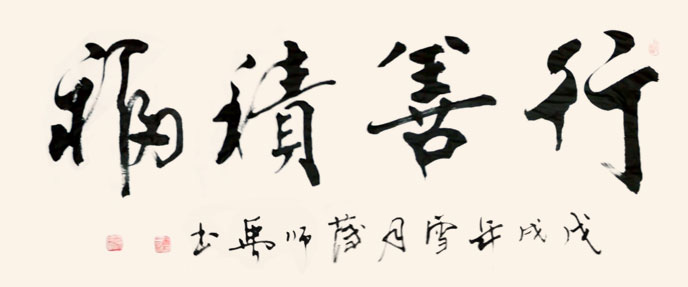 行善積福
戊戌年雪月师书